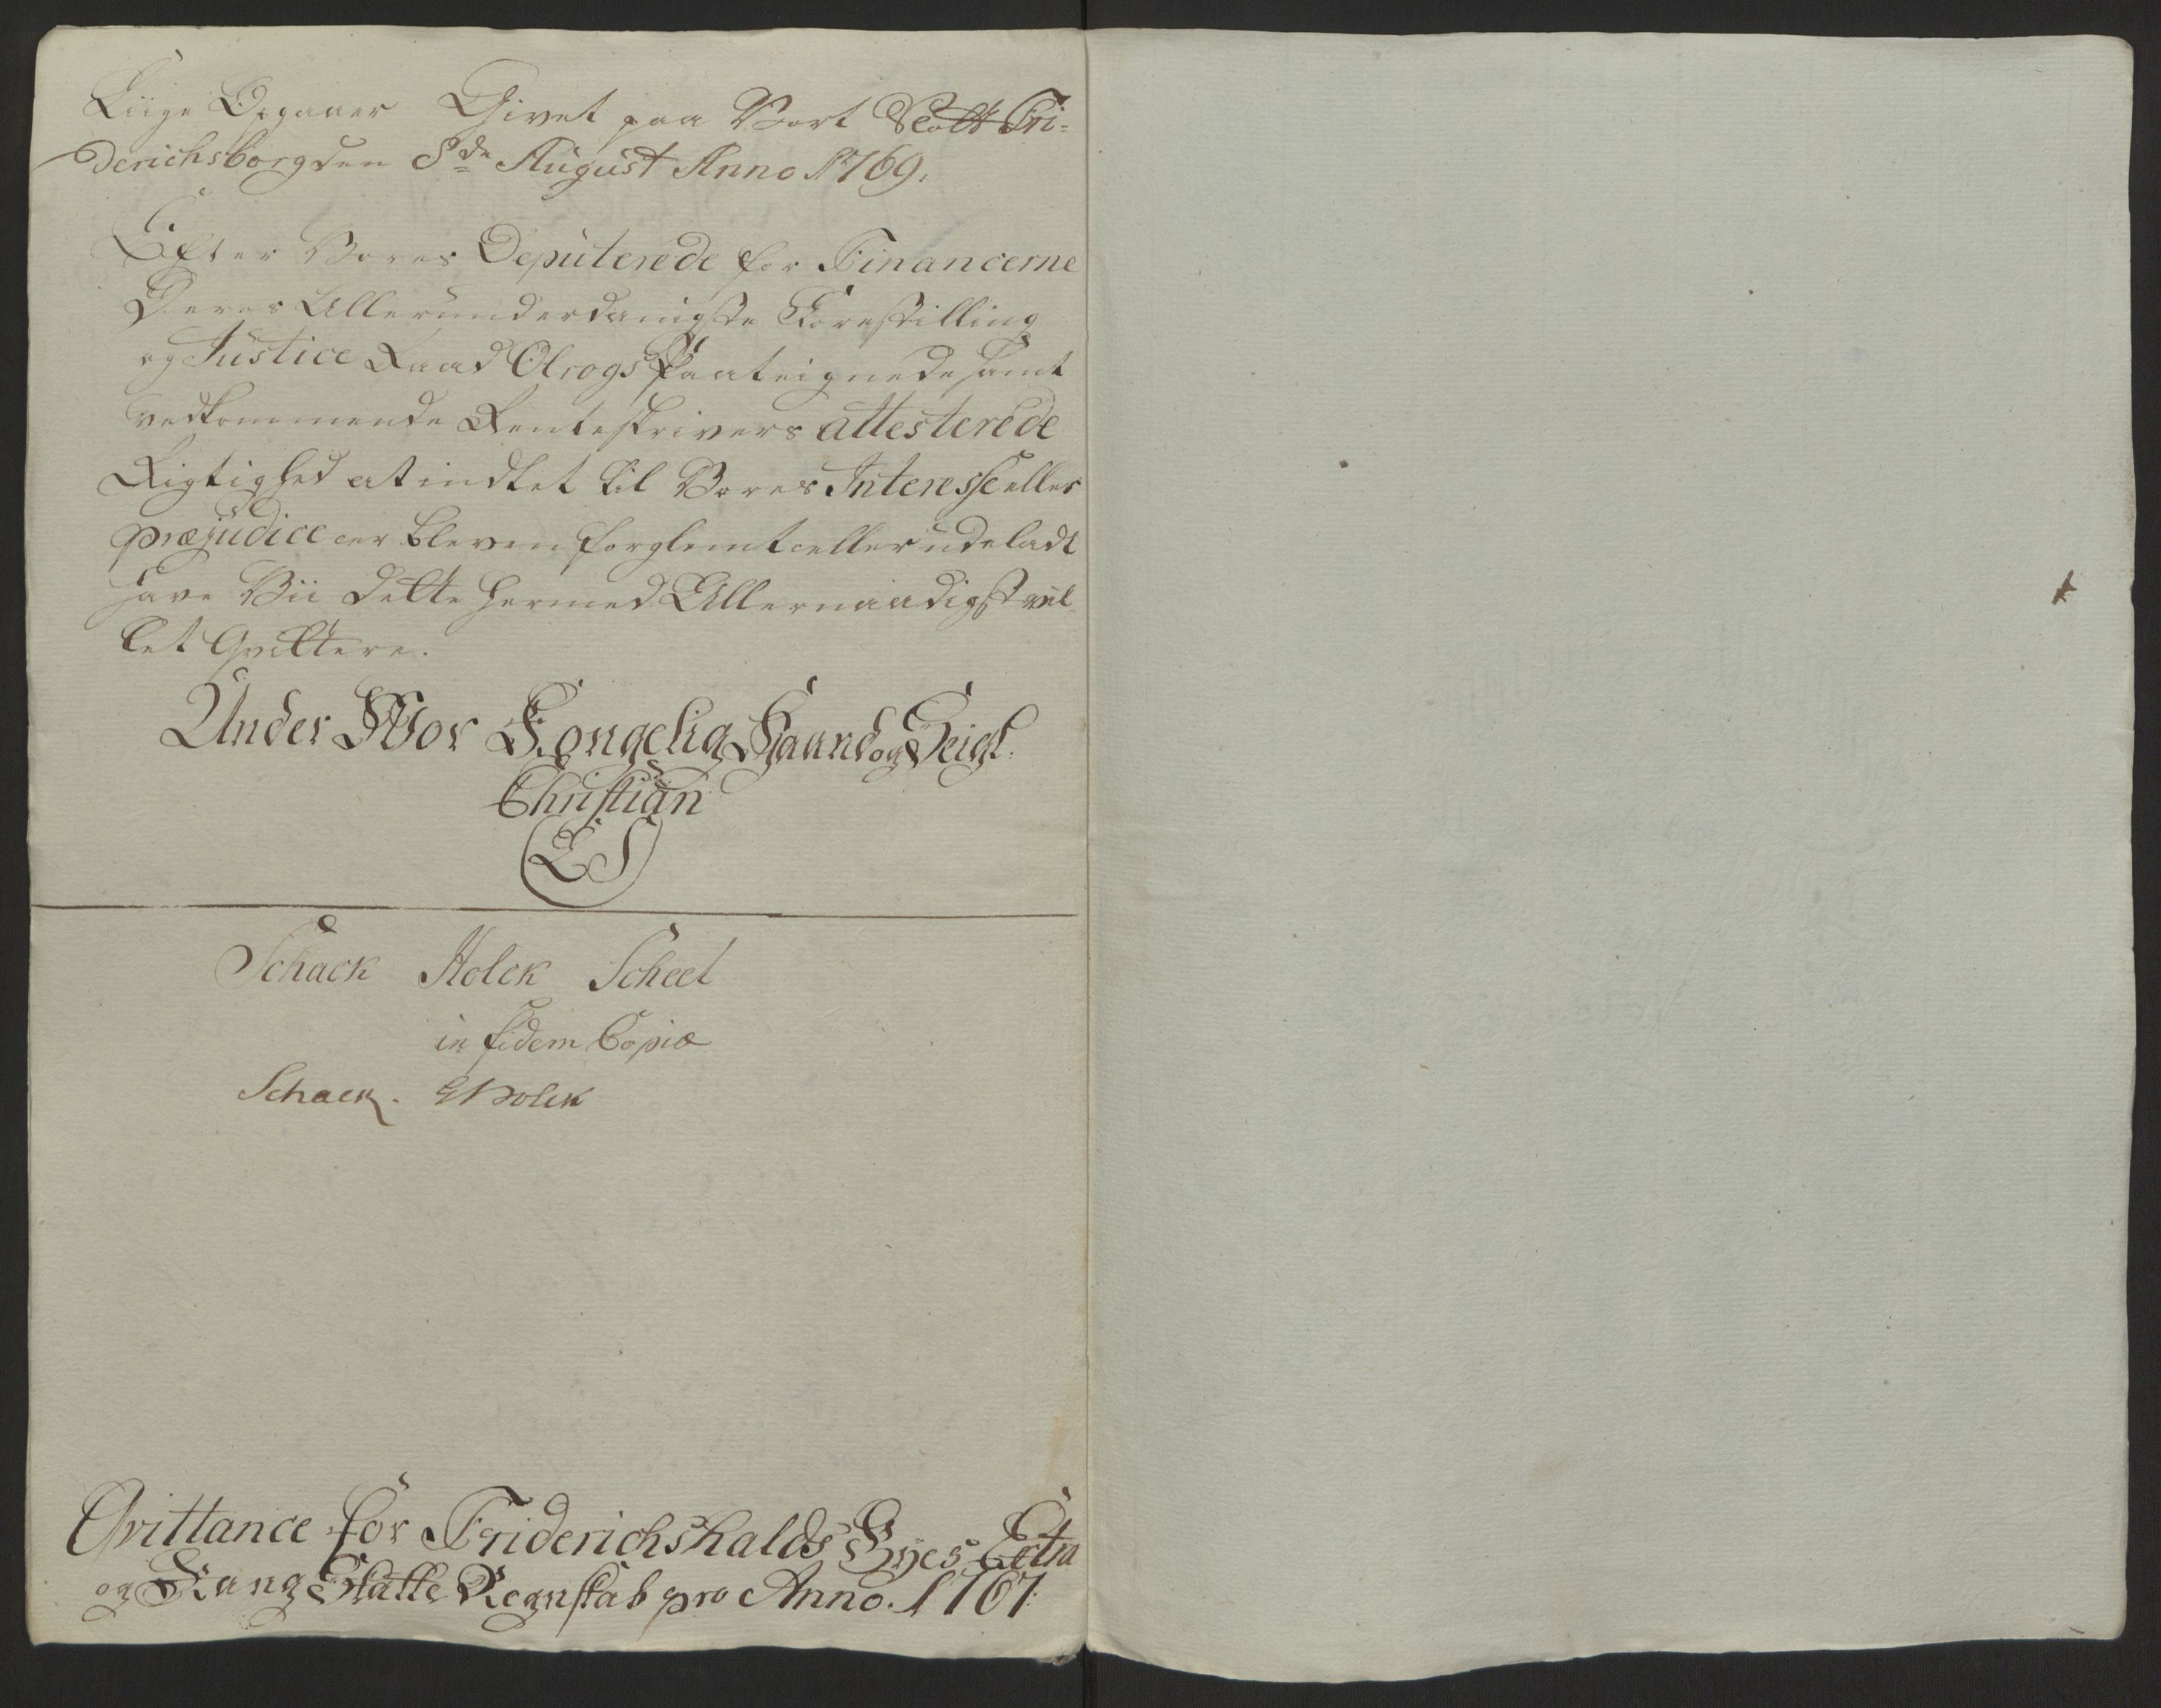 Liige Opgaaer Givet paa Vort Slott Fri-
derichsborg den 8de August Anno 1769.
Efter Vores Deputerede for Financerne
Deres Allerunderdanigste Forestilling
og Justice Raad Olrogs Paateignede samt
vedkommende Renteskrivers attesterede
Rigtighed at indtet til Vores Interesse eller
præjudice er bleven forglemt eller udeladt
have Vii dette hermed Allernaadigst vil-
let Qvittere.
Under Vor Kongelig Haand og Seigl:
Christian
(LS)
Schack Holck Scheel
in fidem Copiæ
Schack. Holck
Qvittance for Friderichshalds Byes Extra
og Rang Skatte Regnskab pro Anno. 1767.